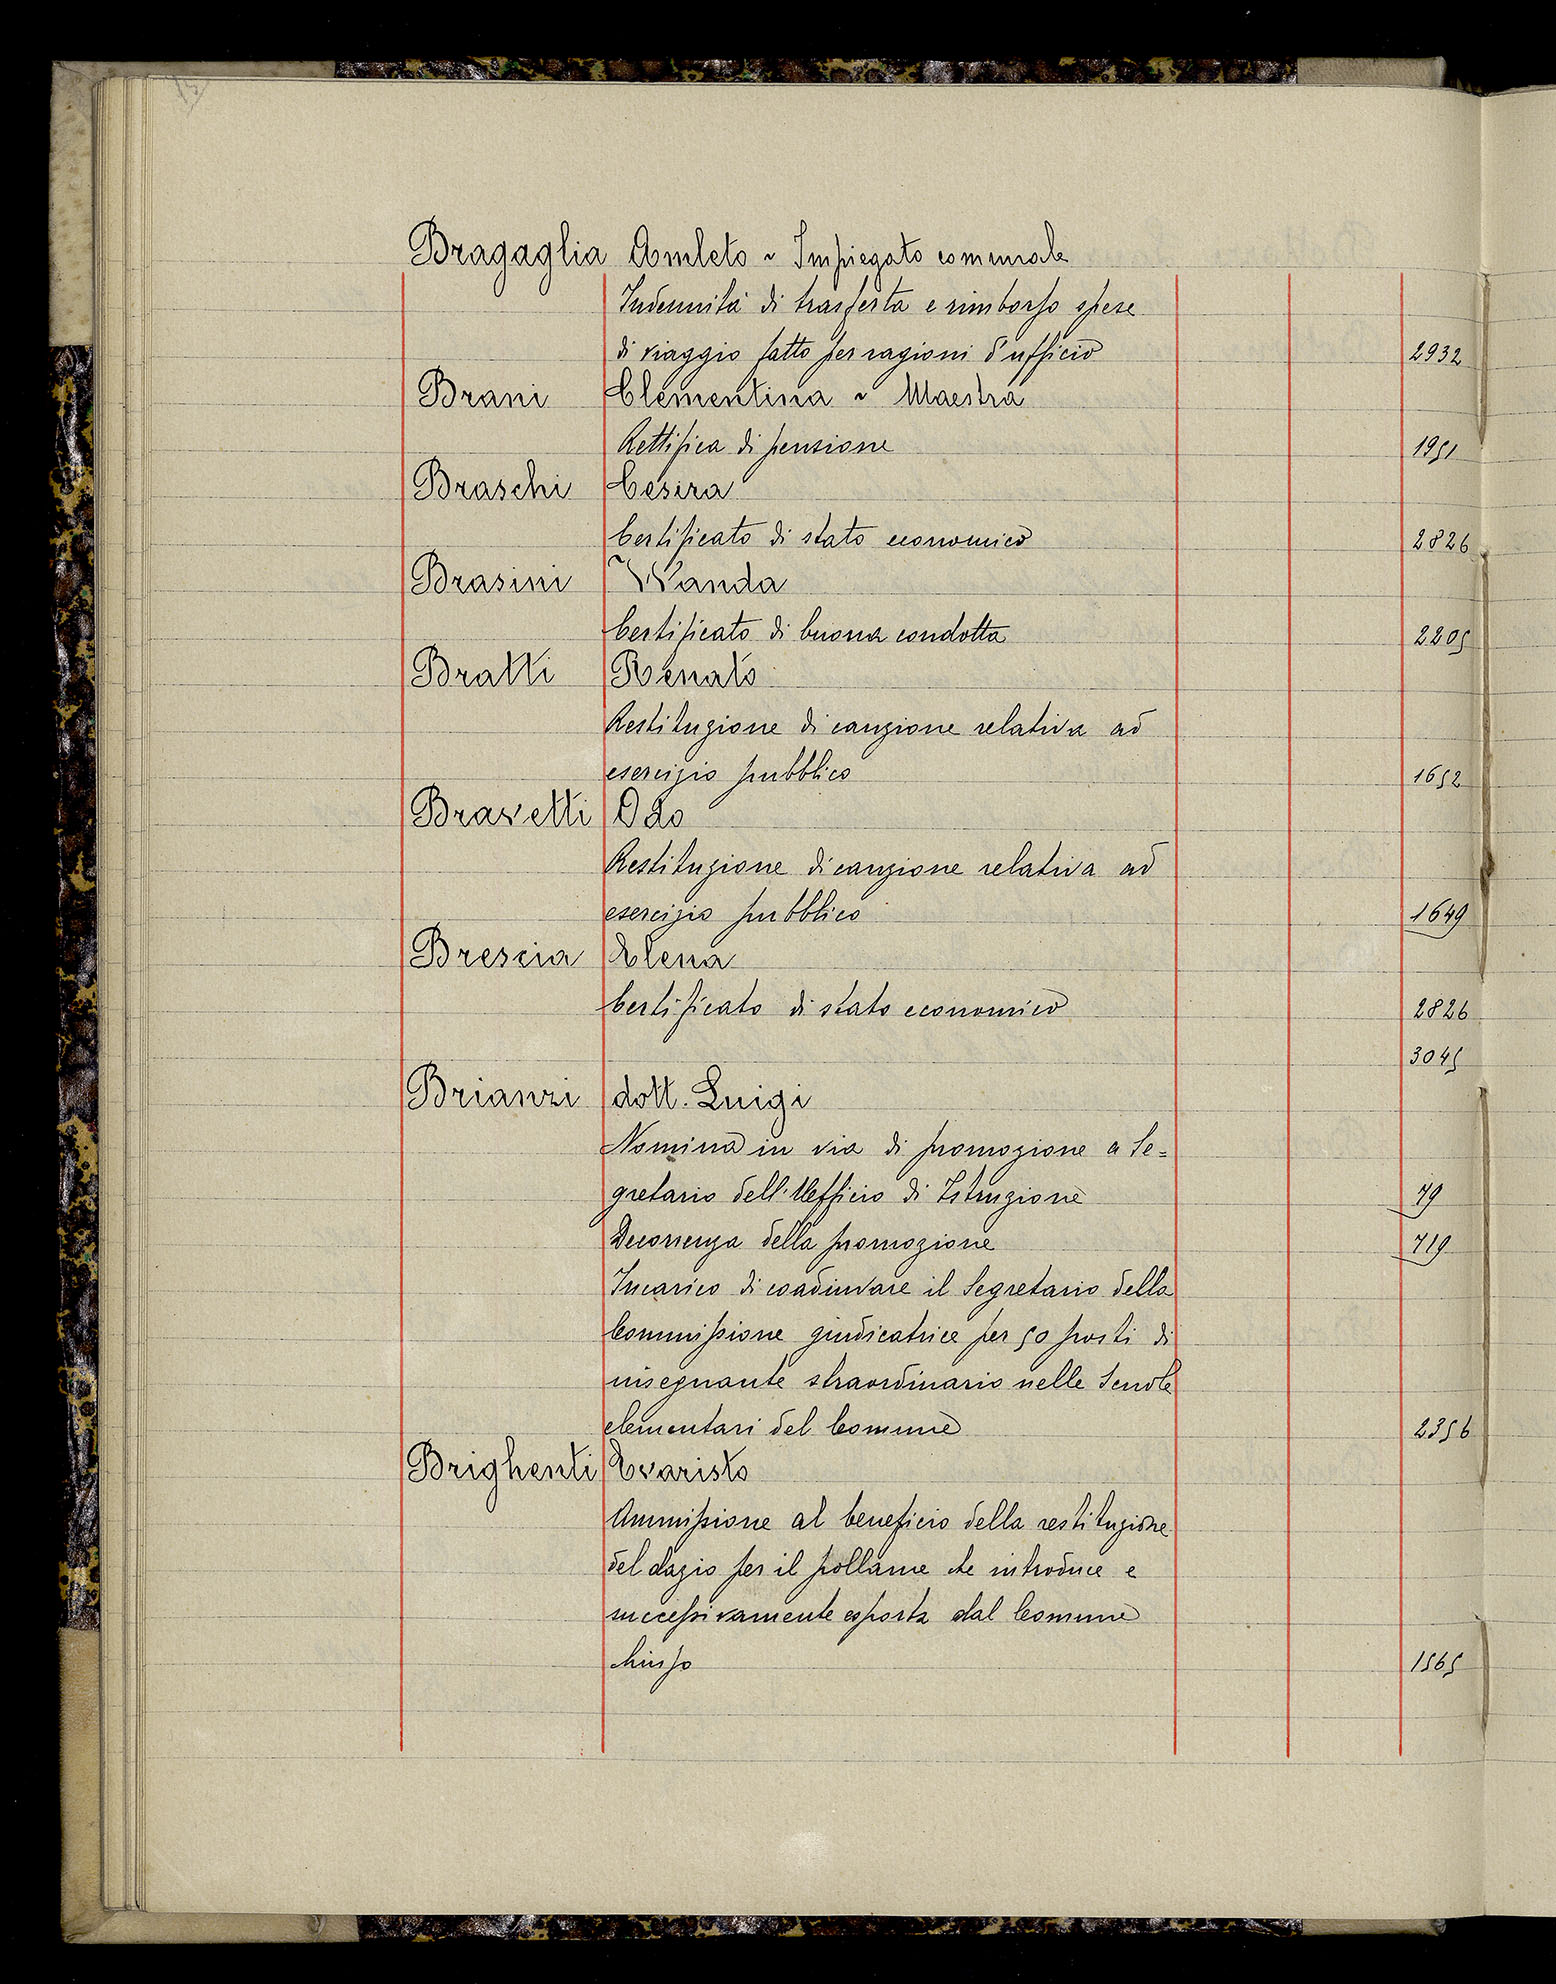 Bragaglia Amleto ~ Impiegato comunale
Indennità di trasferta e rimborso spese
di viaggio fatto per ragioni d'ufficio 2932
Brani Clementina ~ Maestra
Rettifica di pensione 1951
Braschi Cesira
Certificato di stato economico 2826
Brasini Wanda
Certificato di buona condotta 2205
Bratti Renato
Restituzione di cauzione relativa ad
esercizio pubblico 1652
Bravetti Odo
Restituzione di cauzione relativa ad
esercizio pubblico 1649
Brescia Elena
Certificato di stato economico 2826
3045
Brianzi dott. Luigi
Nomina in via di promozione a Se=
gretario dell'Ufficio di Istruzione 79
Decorrenza della promozione 719
Incarico di coadiuvare il Segretario della
Commissione giudicatrice per 50 posti di
insegnante straordinario nelle Scuole
elementari del Comune 2356
Brighenti Evaristo
Ammissione al beneficio della restituzione
del dazio per il pollame che introduce e
successivamente esporta dal Comune
chiuso 1565